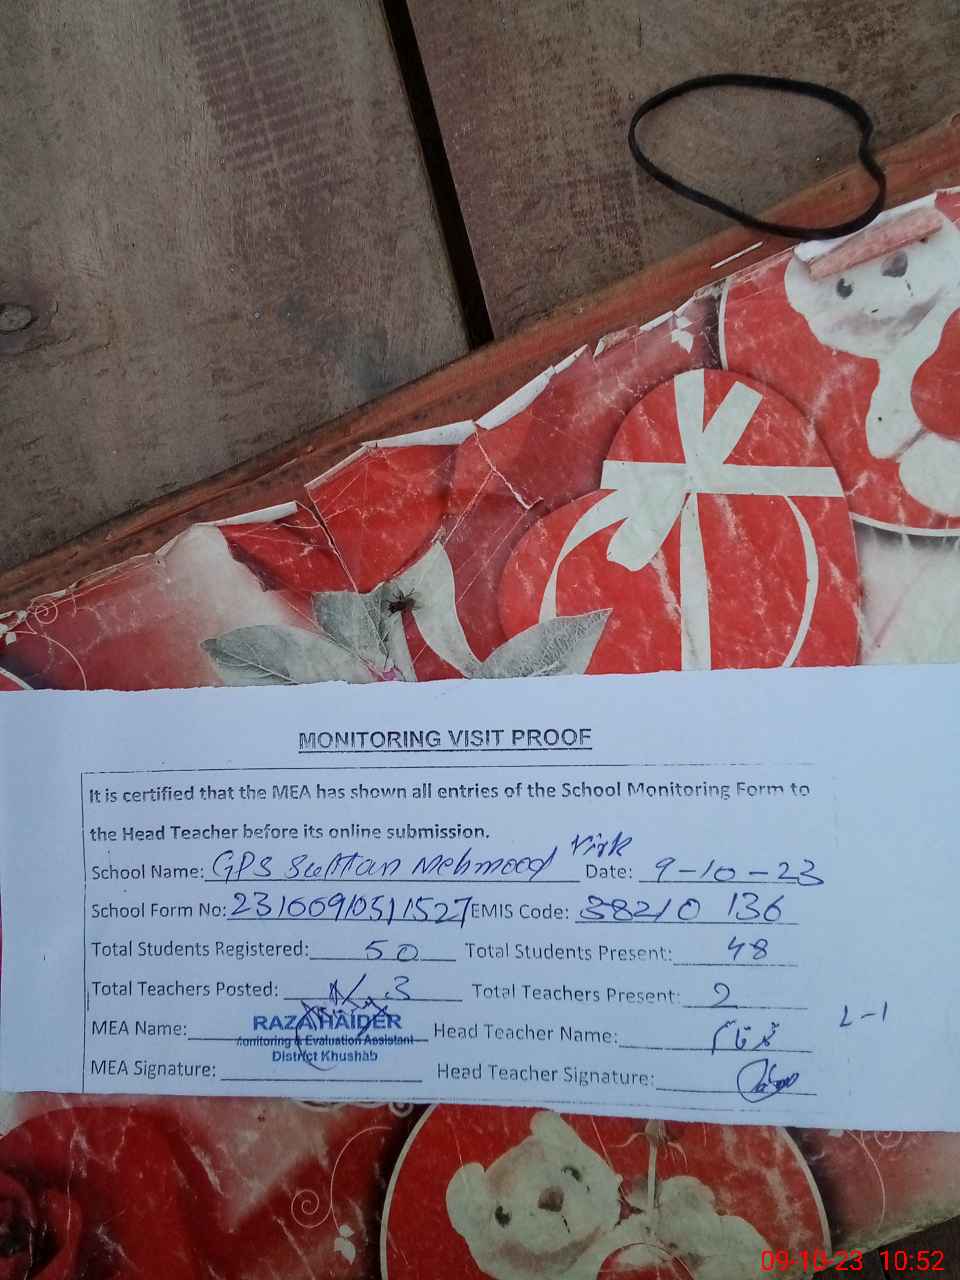 MONITORING VISIT PROOF
It is certified that the MEA has shown all entries of the School Monitoring Form to
the Head Teacher before its online submission.
School Name: GPS Sultan Mehmood Virk Date: 9-10-23
School Form No: EMIS Code: 38210 136
Total Students Registered: 50 Total Students Present: 48
Total Teachers Posted: 3 Total Teachers Present: 2
L-1
MEA Name: RAZA HAIDER Head Teacher Name:
Monitoring & Evaluation Assistant
District Khushab
MEA Signature: Head Teacher Signature:
09-10-23 10:52